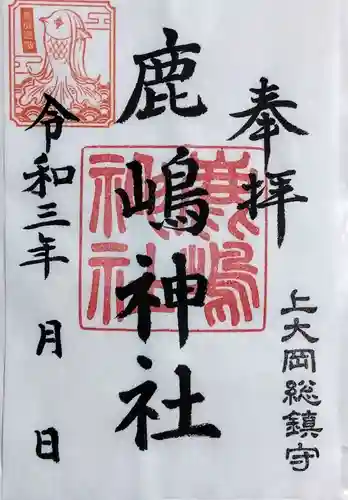 奉拝
上大岡総鎮守
鹿嶋神社
鹿嶋神社
令和三年 月 日